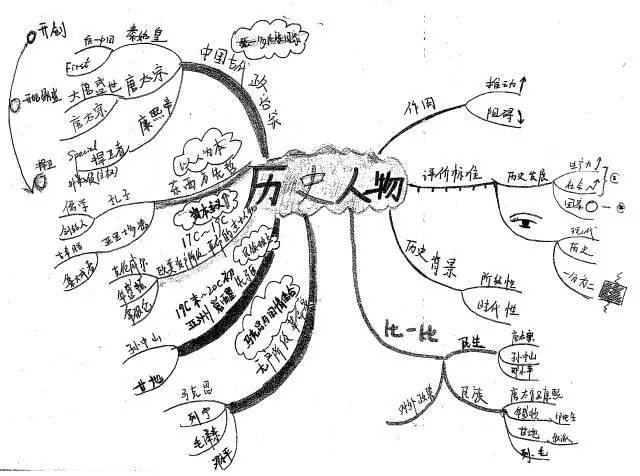 历史人物
中国古代政治家
开创
秦始皇
统一中国
First
大唐盛世
唐太宗
康熙帝
Special
捍卫者
捍卫
以人为本
东西方先哲
孔子
儒学
创始人
亚里士多德
集大成者
资本主义
17C~18C
欧美资产阶级革命
克伦威尔
华盛顿
拿破仑
19C末~20C初
亚洲
孙中山
甘地
无产阶级革命家
马克思
列宁
毛泽东
邓小平
作用
推动↑
阻碍↓
评价标准
历史发展
生产力↑
社会↑
现代
历史
一分为二
历史背景
阶级性
时代性
比一比
民生
唐太宗
孙中山
邓小平
民族
唐太宗&康熙
华盛顿
甘地
列、毛
对外政策